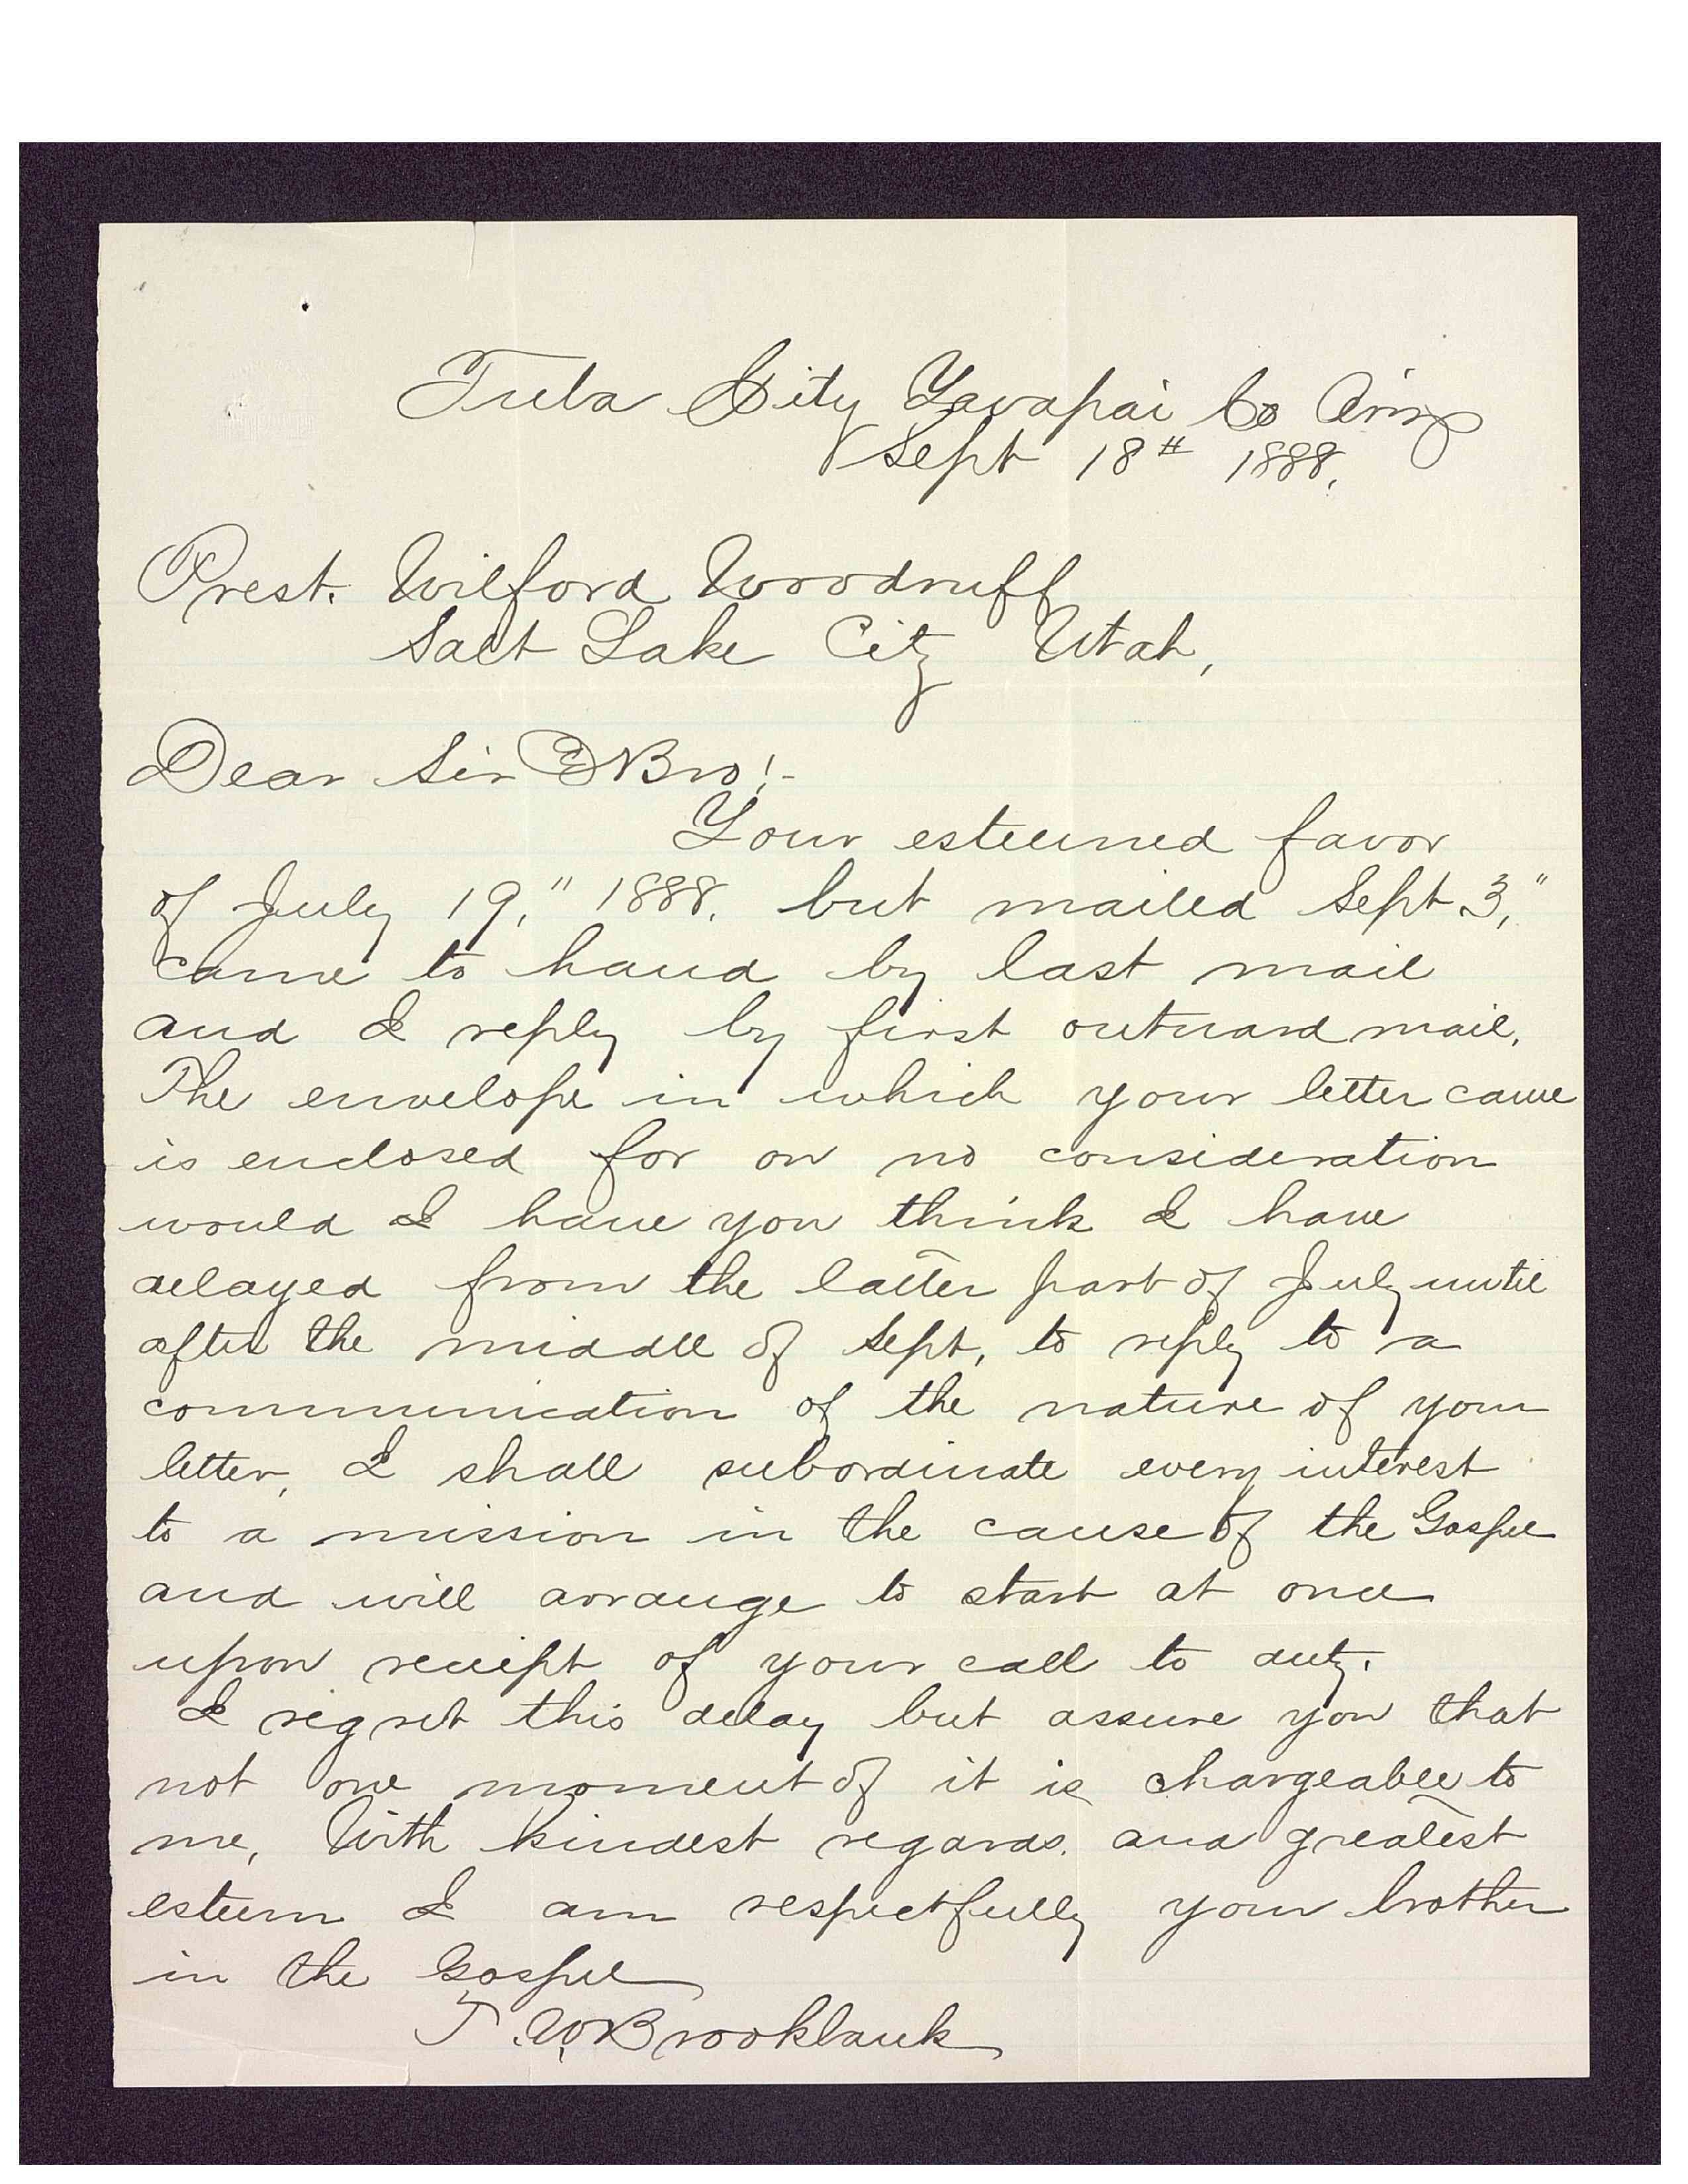 Tuba City Yavapai Co Ariz
Sept 18th 1888.
Prest. Wilford Woodruff
Salt Lake City Utah,
Dear Sir & Bro!-
Your esteemed favor
of July 19," 1888. but mailed Sept 3,"
came to hand by last mail
and I reply by first outward mail.
The envelope in which your letter came
is enclosed for on no consideration
would I have you think I have
delayed from the latter part of July until
after the middle of Sept, to reply to a
communication of the nature of your
letter, I shall subordinate every interest
to a mission in the cause of the Gospel
and will arrange to start at once
upon receipt of your call to duty.
I regret this delay but assure you that
not one moment of it is chargeable to
me, With kindest regards. and greatest
esteem I am respectfully your brother
in the Gospel
T. W. Brookbank